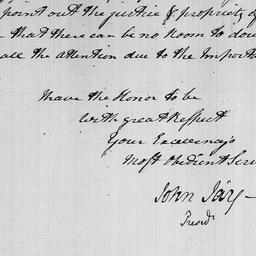 point out the justice & propriety of
that there can be no Room to dou
all the Attention due to the Importa
have the Honor to be
with great Respect
Your Excellency's
most obedient Serv
John Jay
Presidt